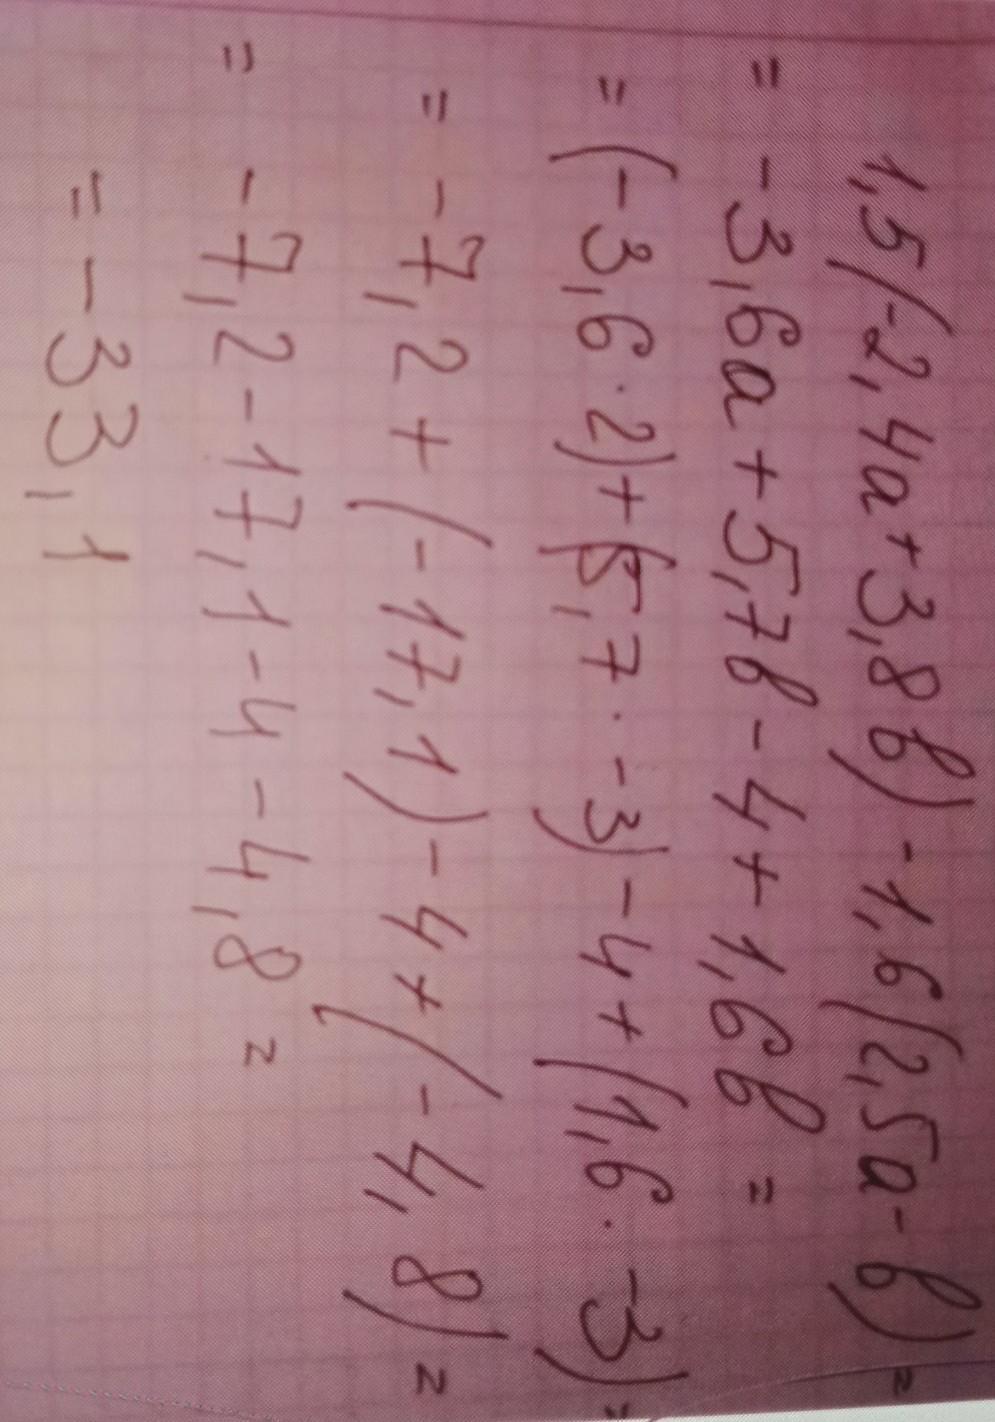 1,5(-2,4а+3,8в)-1,6(2,5а-в)=
= -3,6а+5,7в-4+1,6в =
= (-3,6·2)+(5,7·-3)-4+(1,6·-3)=
= -7,2+(-17,1)-4+(-4,8)=
= -7,2-17,1-4-4,8=
= -33,1